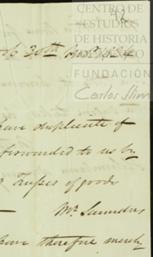 CENTRO DE
ESTUDIOS
DE HISTORIA
FUNDACIÓN
Carlos Slim
30th
duplicate of
forwarded to us by
Trusses of goods
Mr Saunders
have therefore merely